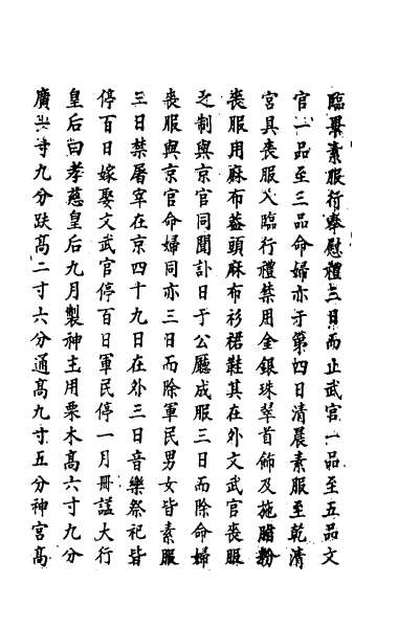 臨畢素服行奉慰禮三日而止武官一品至五品文
官一品至三品命婦亦于第四日清晨素服至乾清
宮具喪服入臨行禮禁用金銀珠翠首飾及施脂粉
喪服用麻布蓋頭麻布衫裙鞋其在外文武官喪服
之制與京官同聞訃日于公廳成服三日而除命婦
喪服與京官命婦同亦三日而除軍民男女皆素服
三日禁屠宰在京四十九日在外三日音樂祭祀皆
停百日嫁娶文武官停百日軍民停一月冊諡大行
皇后曰孝慈皇后九月製神主用栗木高六寸九分
廣六寸九分趺高二寸六分通高九寸五分神宮高